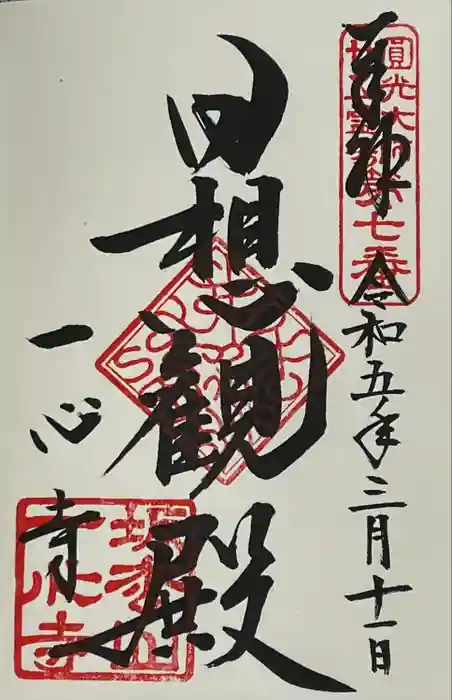 奉拝
令和五年三月十一日
圓光大師
第七番
日想觀殿
一心寺
坂松山
一心寺